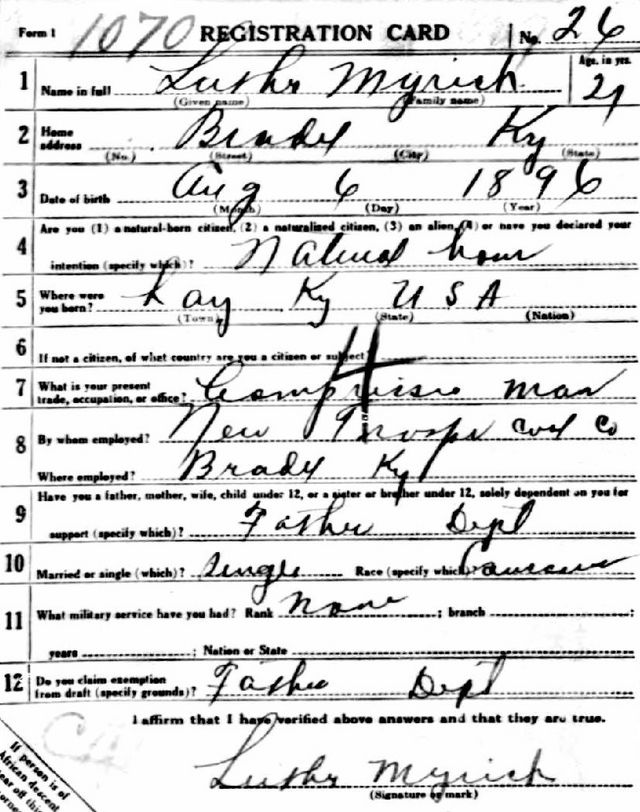 Form 1 1070 REGISTRATION CARD No. 26
1 Name in full Luther Myrick Age, in yrs. 21
(Given name) (Family name)
2 Home address Brady Ky
(No.) (Street) (City) (State)
3 Date of birth Aug 6 1896
(Month) (Day) (Year)
4 Are you (1) a natural-born citizen, (2) a naturalized citizen, (3) an alien, (4) or have you declared your
intention (specify which)? Natural born
5 Where were you born? Lay Ky U S A
(Town) (State) (Nation)
6 If not a citizen, of what country are you a citizen or subject?
7 What is your present trade, occupation, or office? man
8 By whom employed? New Coal Co
Where employed? Brady Ky
9 Have you a father, mother, wife, child under 12, or a sister or brother under 12, solely dependent on you for
support (specify which)? Father Dept
10 Married or single (which)? single Race (specify which)? Caucasian
11 What military service have you had? Rank None ; branch ;
years ; Nation or State
12 Do you claim exemption from draft (specify grounds)? Father Dept
I affirm that I have verified above answers and that they are true.
Luther Myrick
(Signature or mark)
If person is of
African descent